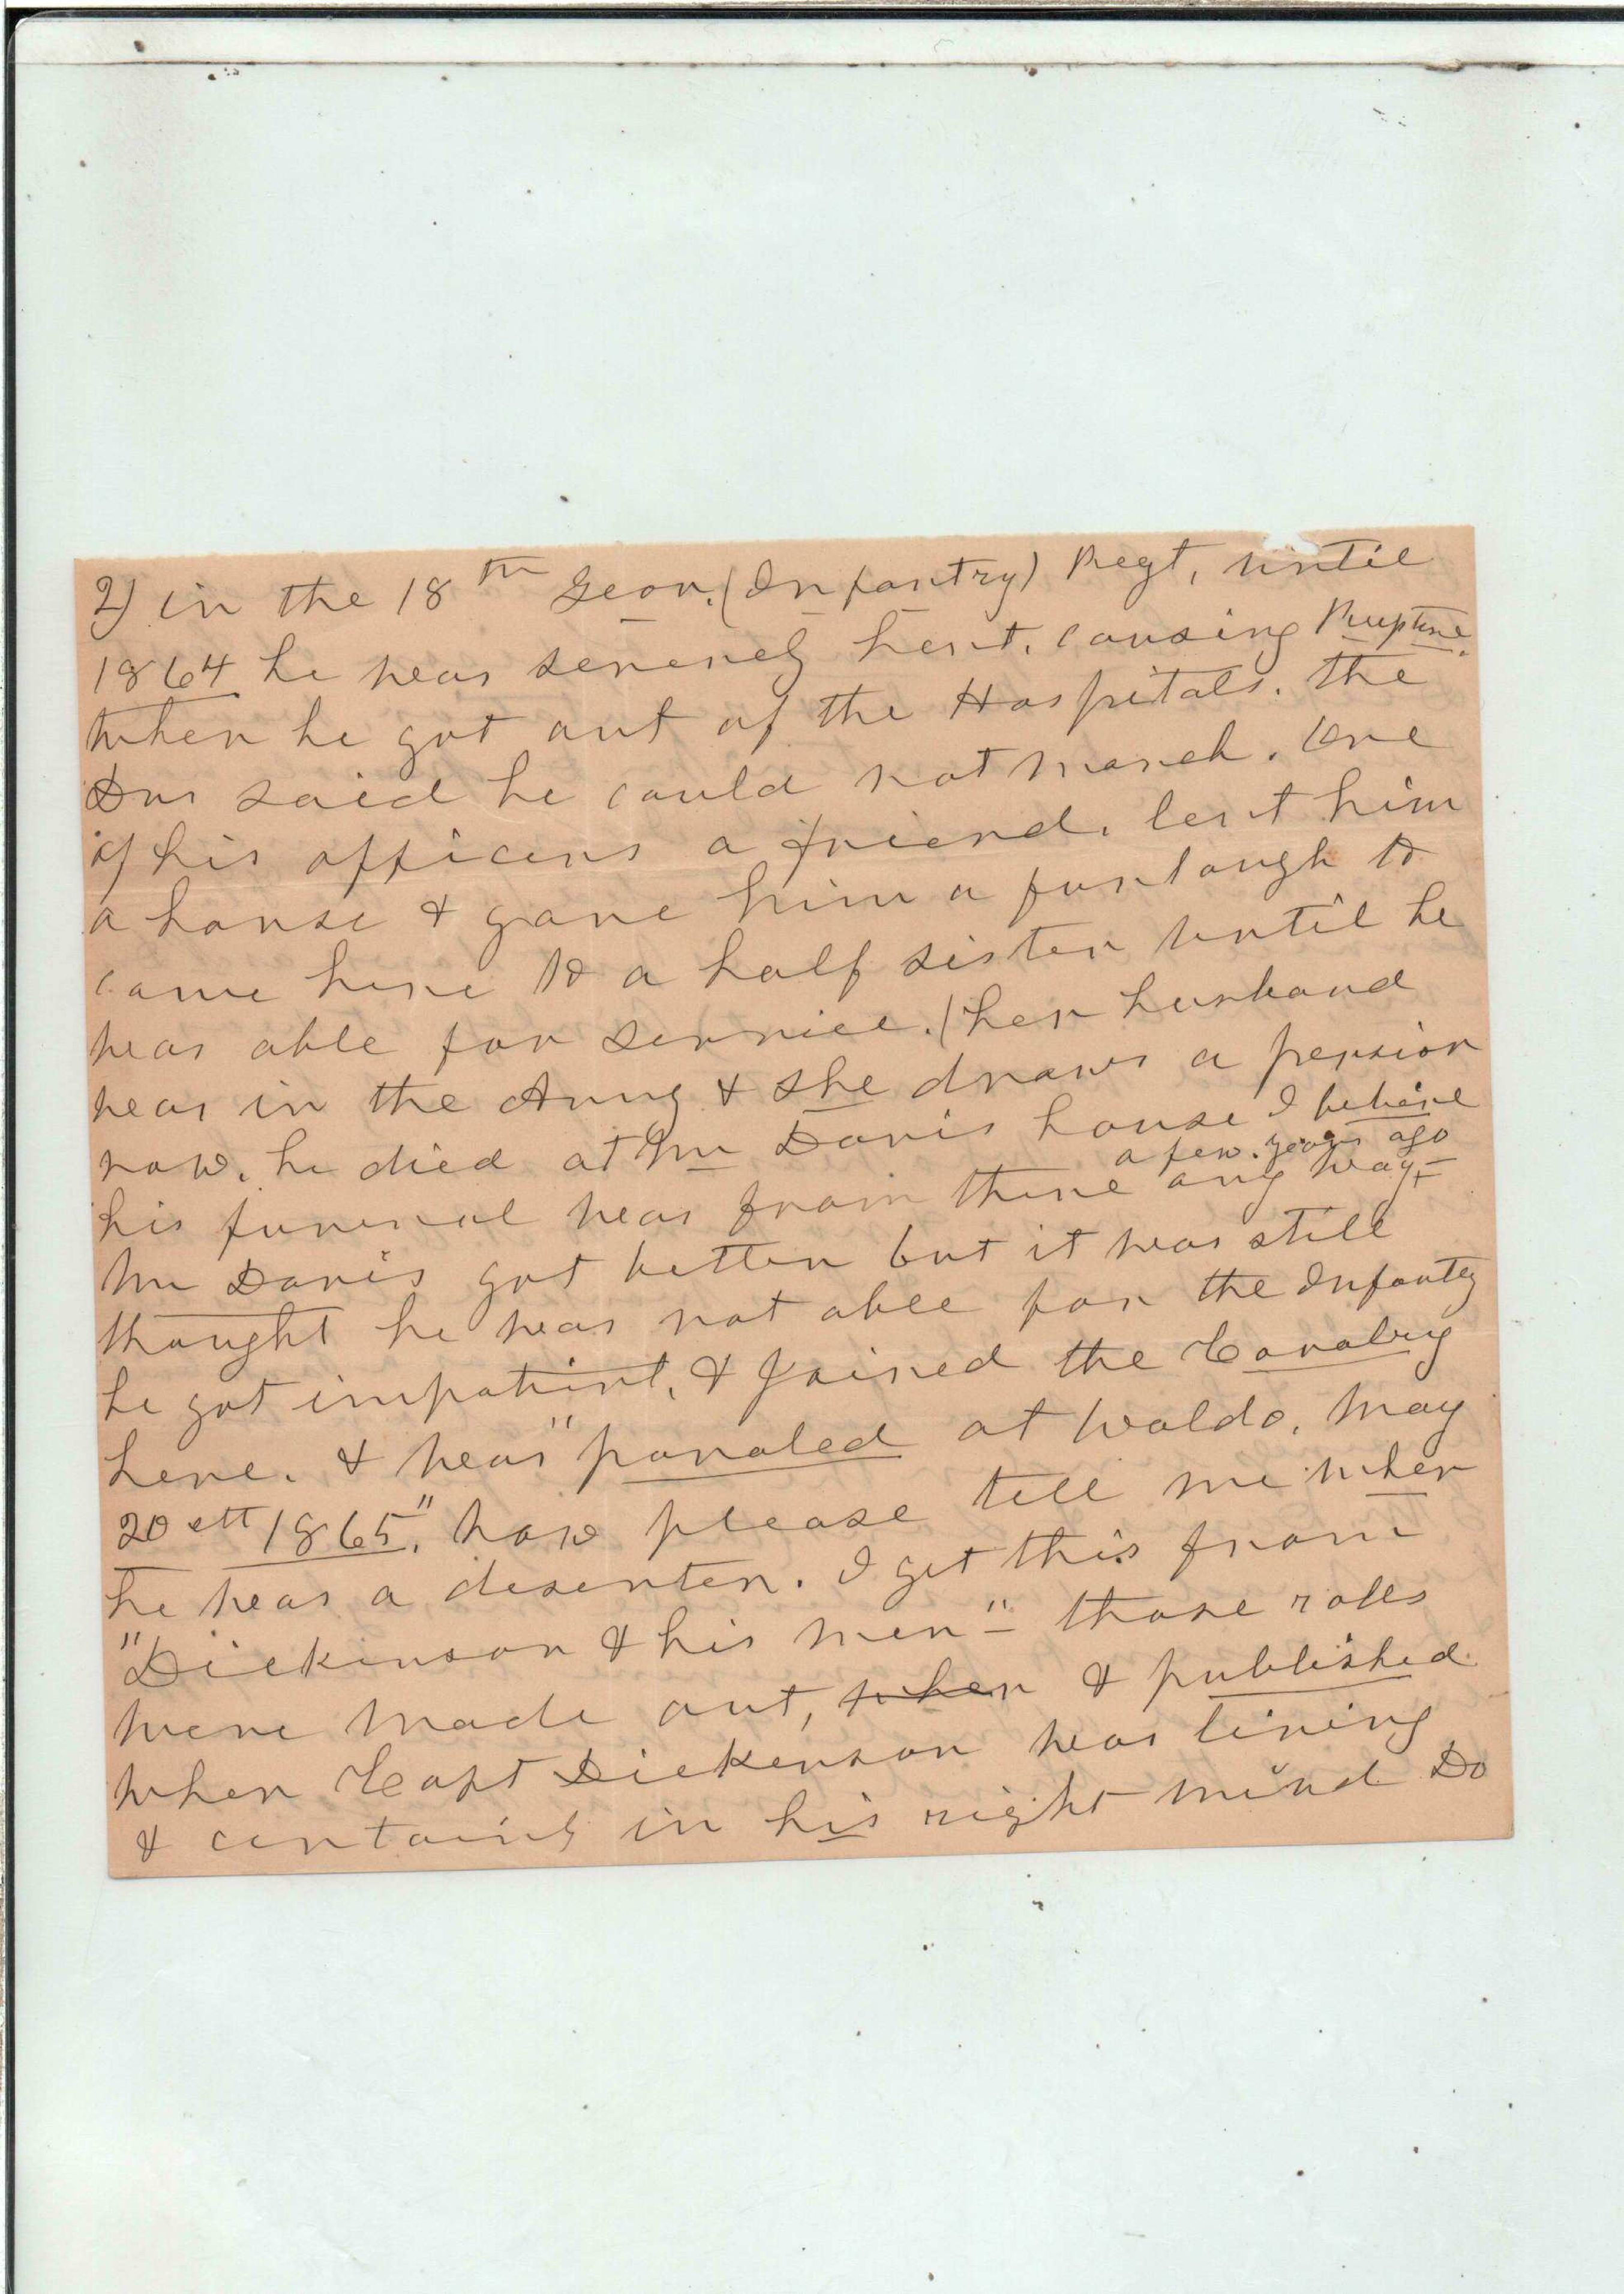 2) in the 18th Geor. (Infantry) Regt, until
1864 he was severely hurt. causing Rupture.
when he got out of the Hospitals. the
Drs said he could not march. One
of his officers a friend. lent him
a horse & gave him a furlough to
come here to a half sister until he
was able for service. (her husband
was in the Army & she draws a pension
now. he died at Mr Davis house I believe
a few years ago
his funeral was from there any way-
Mr Davis got better but it was still
thought he was not able for the Infantry
he got impatient, & joined the Cavalry
here. & was "paroled at Waldo. May
20 ett 1865." how please tell me when
he was a deserter. I get this from
"Dickinson & his men"- those rolls
were made out, when & published
when Capt Dickenson was living
& certainly in his right mind Do